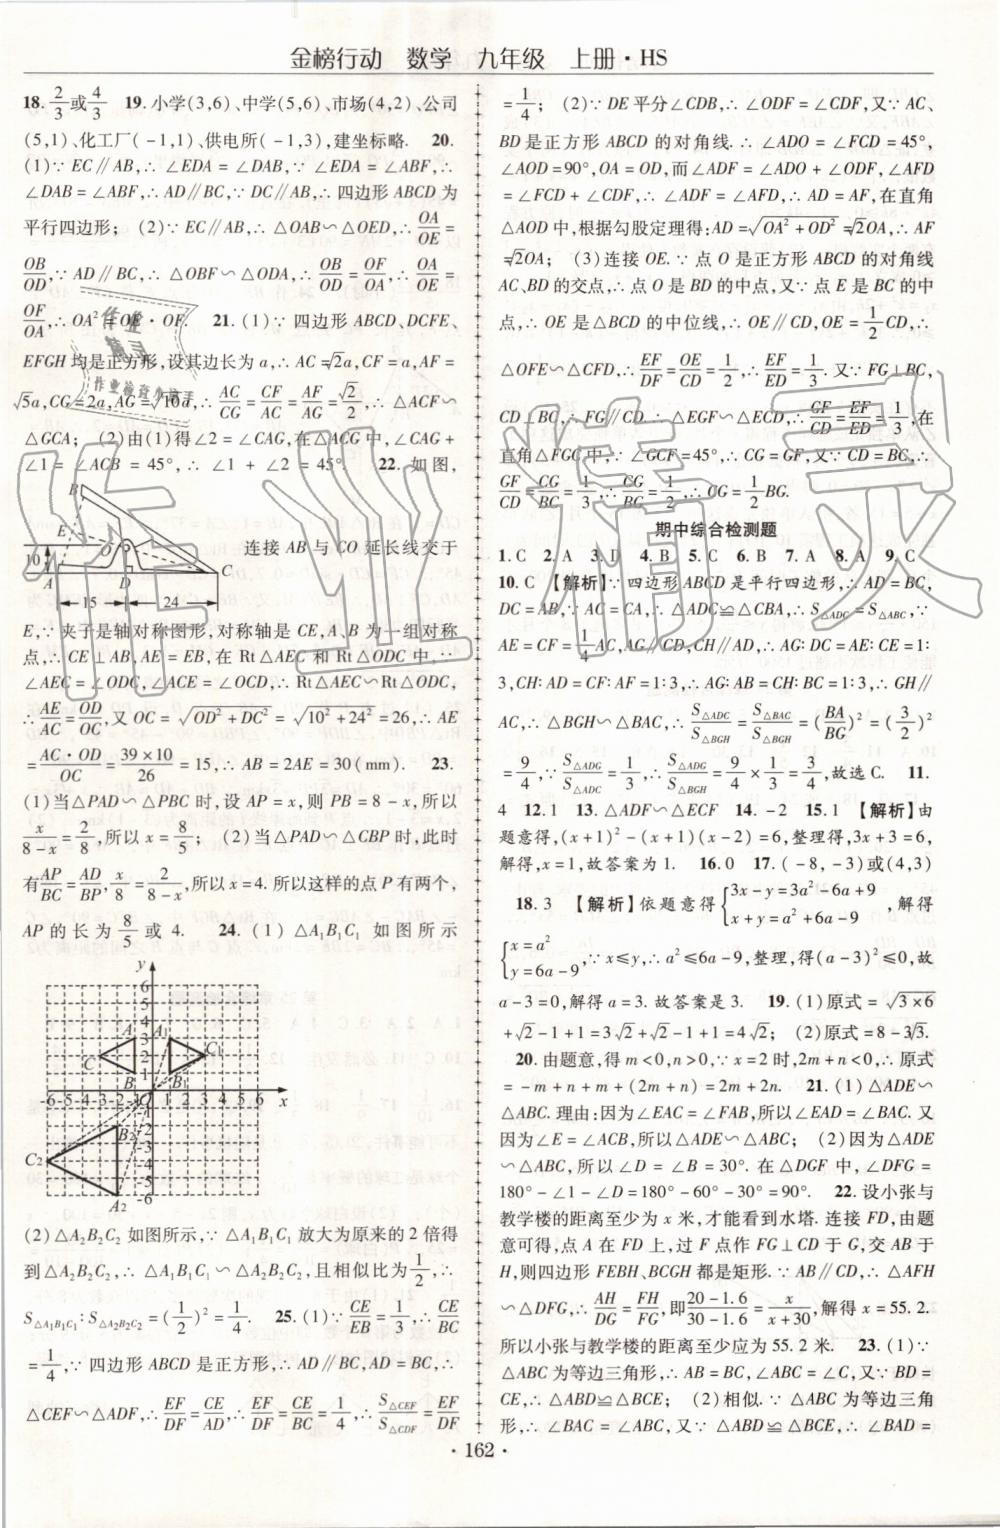 金榜行动 数学 九年级 上册·HS
18. 2/3或4/3 19. 小学(3,6)、中学(5,6)、市场(4,2)、公司
(5,1)、化工厂(-1,1)、供电所(-1,3),建坐标略. 20.
(1)∵EC∥AB,∴∠EDA=∠DAB,∵∠EDA=∠ABF,∴
∠DAB=∠ABF,∴AD∥BC,∵DC∥AB,∴四边形ABCD为
平行四边形; (2)∵EC∥AB,∴△OAB∽△OED,∴OA/OE=
OB/OD,∵AD∥BC,∴△OBF∽△ODA,∴OB/OD=OF/OA,∴OA/OE=
OF/OA,∴OA²=OE·OF. 21. (1)∵四边形ABCD、DCFE、
EFGH均是正方形,设其边长为a,∴AC=√2a,CF=a,AF=
√5a,CG=2a,AG=√10a,∴AC/CG=CF/AC=AF/AG=√2/2,∴△ACF∽
△GCA; (2)由(1)得∠2=∠CAG,在△ACG中,∠CAG+
∠1=∠ACB=45°,∴∠1+∠2=45°. 22. 如图,
B E O 10 A D C 15 24
连接AB与CO延长线交于
E,∵夹子是轴对称图形,对称轴是CE,A、B为一组对称
点,∴CE⊥AB,AE=EB,在Rt△AEC和Rt△ODC中,∵
∠AEC=∠ODC,∠ACE=∠OCD,∴Rt△AEC∽Rt△ODC,
∴AE/AC=OD/OC,又OC=√(OD²+DC²)=√(10²+24²)=26,∴AE
=AC·OD/OC=39×10/26=15,∴AB=2AE=30(mm). 23.
(1)当△PAD∽△PBC时,设AP=x,则PB=8-x,所以
x/(8-x)=2/8,所以x=8/5; (2)当△PAD∽△CBP时,此时
有AP/BC=AD/BP,x/8=2/(8-x),所以x=4.所以这样的点P有两个,
AP的长为8/5或4. 24. (1)△A₁B₁C₁如图所示
y 6 5 4 3 2 1 A A₁ C C₁ B B₁ O
-6-5-4-3-2-1 1 2 3 4 5 6 x
B₂ -2 -3 C₂ -4 -5 -6 A₂
(2)△A₂B₂C₂如图所示,∵△A₁B₁C₁放大为原来的2倍得
到△A₂B₂C₂,∴△A₁B₁C₁∽△A₂B₂C₂,且相似比为1/2,∴
S△A₁B₁C₁:S△A₂B₂C₂=(1/2)²=1/4. 25. (1)∵CE/EB=1/3,∴CE/BC
=1/4,∵四边形ABCD是正方形,∴AD∥BC,AD=BC,∴
△CEF∽△ADF,∴EF/DF=CE/AD,∴EF/DF=CE/BC=1/4,∴S△CEF/S△CDF=EF/DF
=1/4; (2)∵DE平分∠CDB,∴∠ODF=∠CDF,又∵AC、
BD是正方形ABCD的对角线.∴∠ADO=∠FCD=45°,
∠AOD=90°,OA=OD,而∠ADF=∠ADO+∠ODF,∠AFD
=∠FCD+∠CDF,∴∠ADF=∠AFD,∴AD=AF,在直角
△AOD中,根据勾股定理得:AD=√(OA²+OD²)=√2OA,∴AF
=√2OA; (3)连接OE.∵点O是正方形ABCD的对角线
AC、BD的交点,∴点O是BD的中点,又∵点E是BC的中
点,∴OE是△BCD的中位线,∴OE∥CD,OE=1/2CD,∴
△OFE∽△CFD,∴EF/DF=OE/CD=1/2,∴EF/ED=1/3.又∵FG⊥BC,
CD⊥BC,∴FG∥CD,∴△EGF∽△ECD,∴GF/CD=EF/ED=1/3,在
直角△FGC中,∵∠GCF=45°,∴CG=GF,又∵CD=BC,∴
GF/CD=CG/BC=1/3,∴CG/BG=1/2,∴CG=1/2BG.
期中综合检测题
1. C 2. A 3. D 4. B 5. C 6. B 7. A 8. A 9. C
10. C 【解析】∵四边形ABCD是平行四边形,∴AD=BC,
DC=AB,∵AC=CA,∴△ADC≌△CBA,∴S△ADC=S△ABC,∵
AE=CF=1/4AC,AG∥CD,CH∥AD,∴AG:DC=AE:CE=1:
3,CH:AD=CF:AF=1:3,∴AG:AB=CH:BC=1:3,∴GH∥
AC,∴△BGH∽△BAC,∴S△ADC/S△BGH=S△BAC/S△BGH=(BA/BG)²=(3/2)²
=9/4,∵S△ADG/S△ADC=1/3,∴S△ADG/S△BGH=9/4×1/3=3/4,故选C. 11.
4 12. 1 13. △ADF∽△ECF 14. -2 15. 1 【解析】由
题意得,(x+1)²-(x+1)(x-2)=6,整理得,3x+3=6,
解得,x=1,故答案为1. 16. 0 17. (-8,-3)或(4,3)
18. 3 【解析】依题意得{3x-y=3a²-6a+9 x+y=a²+6a-9,解得
{x=a² y=6a-9,∵x≤y,∴a²≤6a-9,整理,得(a-3)²≤0,故
a-3=0,解得a=3.故答案是3. 19. (1)原式=√(3×6)
+√2-1+1=3√2+√2-1+1=4√2; (2)原式=8-3√3.
20. 由题意,得m<0,n>0,∵x=2时,2m+n<0,∴原式
=-m+n+m+(2m+n)=2m+2n. 21. (1)△ADE∽
△ABC.理由:因为∠EAC=∠FAB,所以∠EAD=∠BAC.又
因为∠E=∠ACB,所以△ADE∽△ABC; (2)因为△ADE
∽△ABC,所以∠D=∠B=30°.在△DGF中,∠DFG=
180°-∠D-∠BGD=180°-60°-30°=90°. 22. 设小张与
教学楼的距离至少为x米,才能看到水塔.连接FD,由题
意可得,点A在FD上,过F点作FG⊥CD于G,交AB于
H,则四边形FEBH、BCGH都是矩形.∵AB∥CD,∴△AFH
∽△DFG,∴AH/DG=FH/FG,即(20-1.6)/(30-1.6)=x/(x+30),解得x=55.2.
所以小张与教学楼的距离至少应为55.2米. 23. (1)∵
△ABC为等边三角形,∴AB=BC,∠ABC=∠C,又∵BD=
CE,∴△ABD≌△BCE; (2)相似.∵△ABC为等边三角
形,∴∠BAC=∠ABC,又∵△ABD≌△BCE,∴∠BAD=
·162·
作业精灵
作业检查小助手